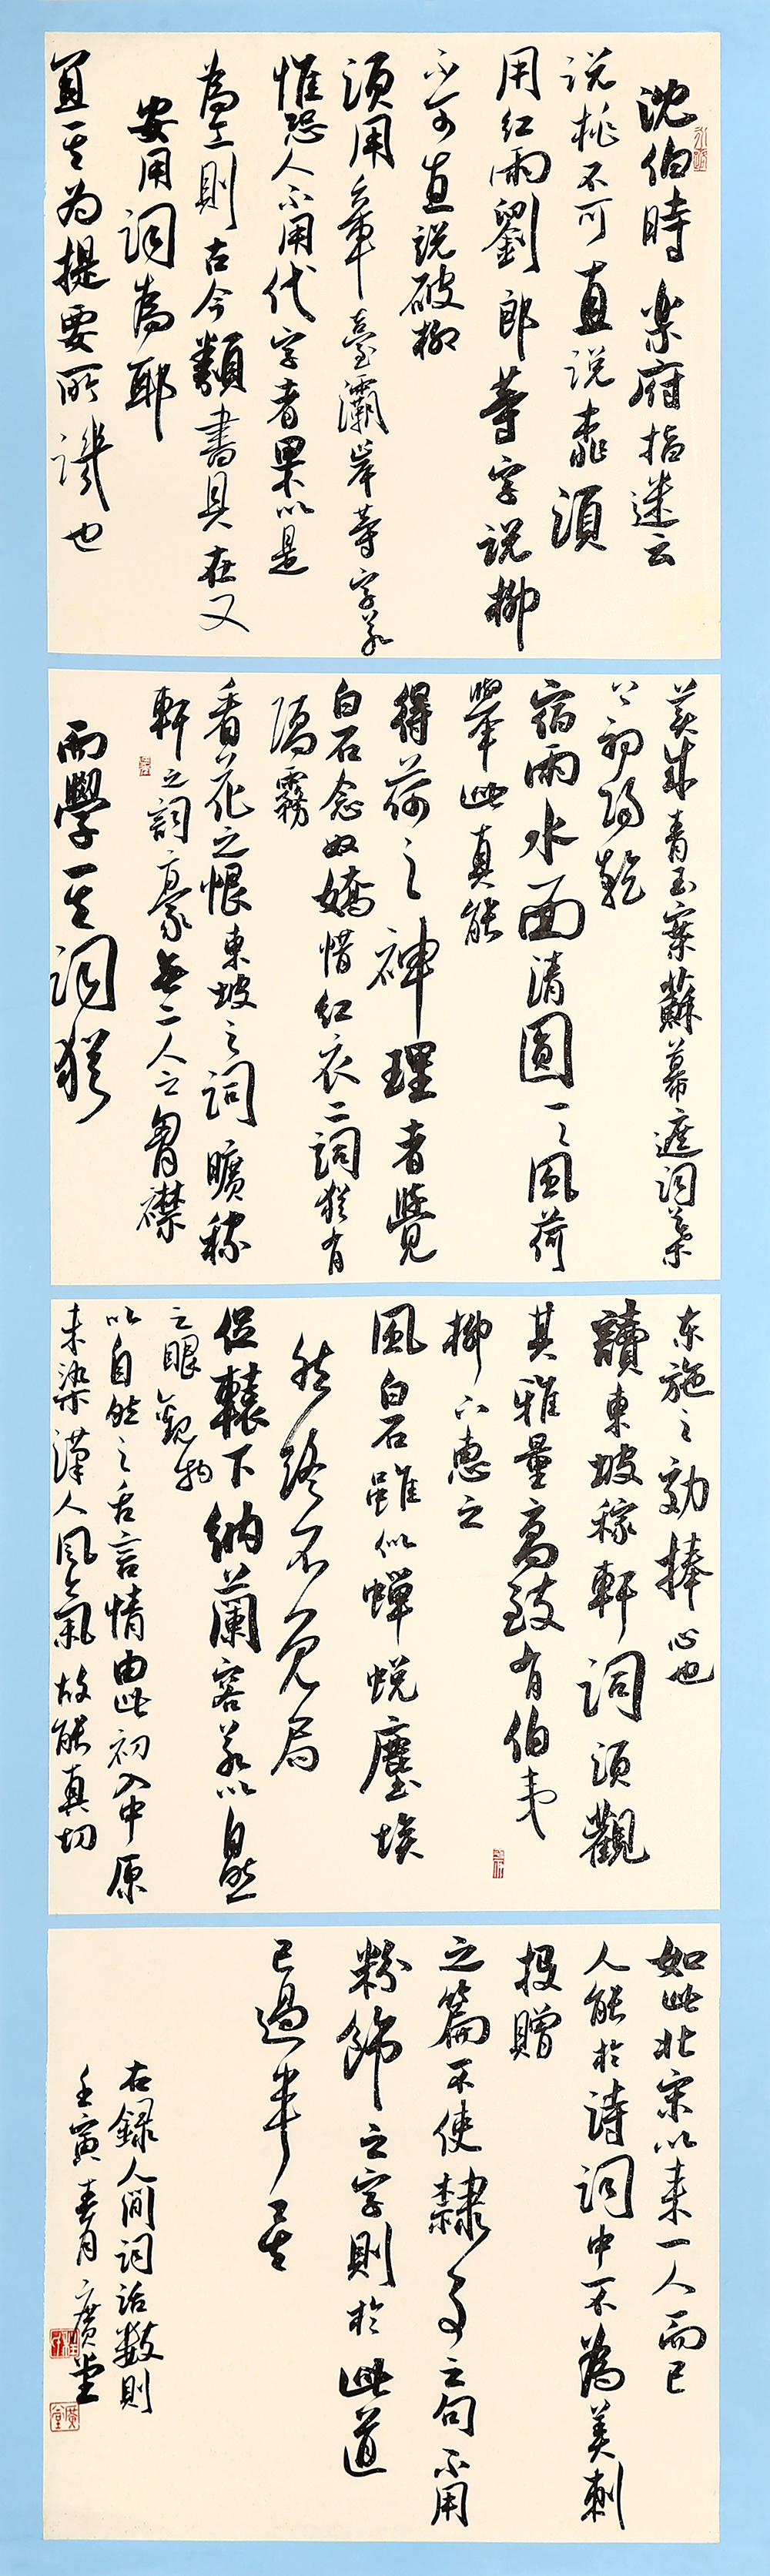 沈伯時樂府指迷云
说桃不可直说桃須
用红雨劉郎等字说柳
不可直説破柳
須用章臺灞岸等字若
惟恐人不用代字者果以是
為工則古今類書具在又
安用詞為耶
宜其为提要所譏也
美成青玉案蘇幕遮词葉
上初陽乾
宿雨水面清圓一一風荷
舉此真能
得荷之神理者覺
白石念奴嬌惜红衣二詞犹有
隔霧
看花之恨東坡之詞曠稼
軒之詞豪無二人之胷襟
而學其词犹
东施之効捧心也
讀東坡稼軒词須觀
其雅量高致有伯夷
柳下惠之
風白石雖似蟬蜕塵埃
然終不免局
促轅下納蘭容若以自然
之眼觀物
以自然之舌言情由此初入中原
未染漢人風氣故能真切
如此北宋以来一人而已
人能於诗词中不為美刺
投贈
之篇不使隸事之句不用
粉飾之字則於此道
已過半矣
右録人间词话数則
壬寅春月廣堂